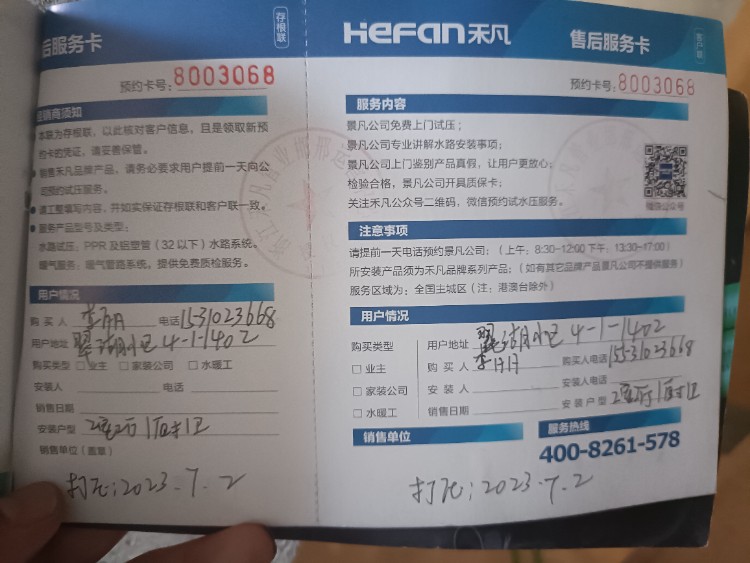 后服务卡
存根联
预约卡号:8003068
销商须知
本联为存根联,以此核对客户信息,且是领取新预
约卡的凭证,请妥善保管。
销售禾凡品牌产品,请务必要求用户提前一天向公
司预约试压服务。
请工整填写内容,并如实保证存根联和客户联一致。
服务产品型号及类型:
水路试压:PPR 及铝塑管(32以下)水路系统。
暖气服务:暖气管路系统,提供免费质检服务。
用户情况
购买人 李月 电话15531023668
用户地址 翠湖小区4-1-1402
购买类型 □业主 □家装公司 □水暖工
安装人 电话
销售日期
安装户型 2室2厅1厨1卫
销售单位(盖章)
打压:2023.7.2
HeFan禾凡
售后服务卡
客户联
预约卡号:8003068
服务内容
景凡公司免费上门试压;
景凡公司专业讲解水路安装事项;
景凡公司上门鉴别产品真假,让用户更放心;
检验合格,景凡公司开具质保卡;
关注禾凡公众号二维码,微信预约试水压服务。
微信公众号
注意事项
请提前一天电话预约景凡公司:(上午:8:30-12:00 下午:13:30-17:00)
所安装产品须为禾凡品牌系列产品:(如有其它品牌产品景凡公司不提供服务)
服务区域为:全国主城区(注:港澳台除外)
用户情况
购买类型 用户地址 翠湖小区4-1-1402
□业主 购买人 李月 购买人电话 15531023668
□家装公司 安装人 安装人电话
□水暖工 销售日期 安装户型 2室2厅1厨1卫
销售单位
服务热线
400-8261-578
打压:2023.7.2